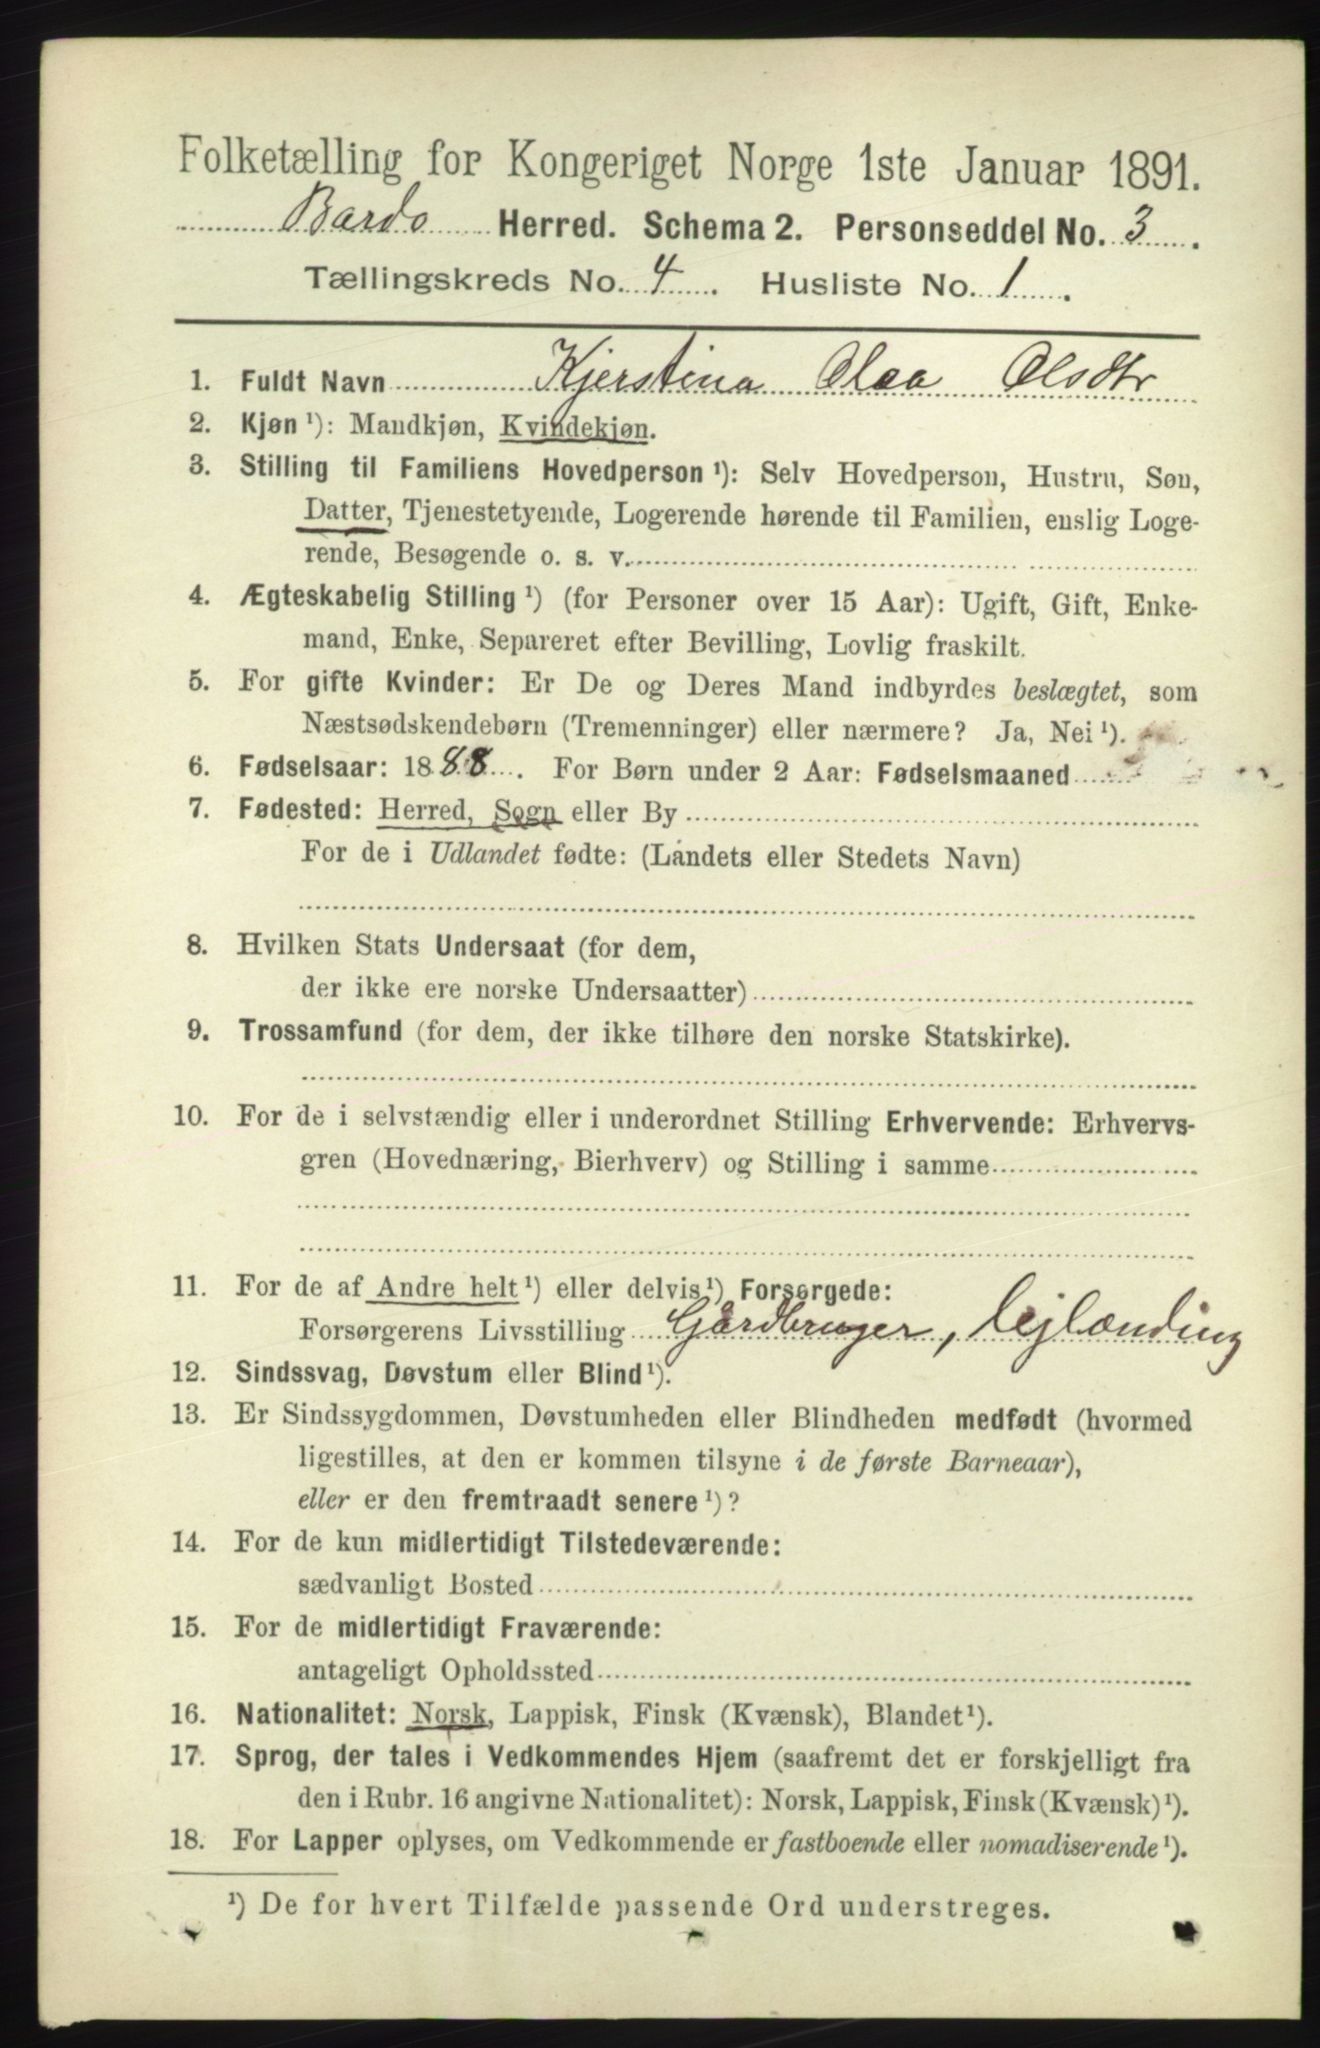 Folketælling for Kongeriget Norge 1ste Januar 1891.
Bardo Herred. Schema 2. Personseddel No. 3.
Tællingskreds No. 4. Husliste No. 1.
1. Fuldt Navn Kjerstina Olea Olsdtr
2. Kjøn ¹): Mandkjøn, Kvindekjøn.
3. Stilling til Familiens Hovedperson ¹): Selv Hovedperson, Hustru, Søn,
Datter, Tjenestetyende, Logerende hørende til Familien, enslig Loge-
rende, Besøgende o. s. v.
4. Ægteskabelig Stilling ¹) (for Personer over 15 Aar): Ugift, Gift, Enke-
mand, Enke, Separeret efter Bevilling, Lovlig fraskilt.
5. For gifte Kvinder: Er De og Deres Mand indbyrdes beslægtet, som
Næstsødskendebørn (Tremenninger) eller nærmere? Ja, Nei ¹).
6. Fødselsaar: 1888. For Børn under 2 Aar: Fødselsmaaned
7. Fødested: Herred, Sogn eller By
For de i Udlandet fødte: (Landets eller Stedets Navn)
8. Hvilken Stats Undersaat (for dem,
der ikke ere norske Undersaatter)
9. Trossamfund (for dem, der ikke tilhøre den norske Statskirke).
10. For de i selvstændig eller i underordnet Stilling Erhvervende: Erhvervs-
gren (Hovednæring, Bierhverv) og Stilling i samme
11. For de af Andre helt ¹) eller delvis ¹) Forsørgede:
Forsørgerens Livsstilling Gårdbruger, lejlænding
12. Sindssvag, Døvstum eller Blind ¹).
13. Er Sindssygdommen, Døvstumheden eller Blindheden medfødt (hvormed
ligestilles, at den er kommen tilsyne i de første Barneaar),
eller er den fremtraadt senere ¹)?
14. For de kun midlertidigt Tilstedeværende:
sædvanligt Bosted
15. For de midlertidigt Fraværende:
antageligt Opholdssted
16. Nationalitet: Norsk, Lappisk, Finsk (Kvænsk), Blandet ¹).
17. Sprog, der tales i Vedkommendes Hjem (saafremt det er forskjelligt fra
den i Rubr. 16 angivne Nationalitet): Norsk, Lappisk, Finsk (Kvænsk) ¹).
18. For Lapper oplyses, om Vedkommende er fastboende eller nomadiserende ¹).
¹) De for hvert Tilfælde passende Ord understreges.